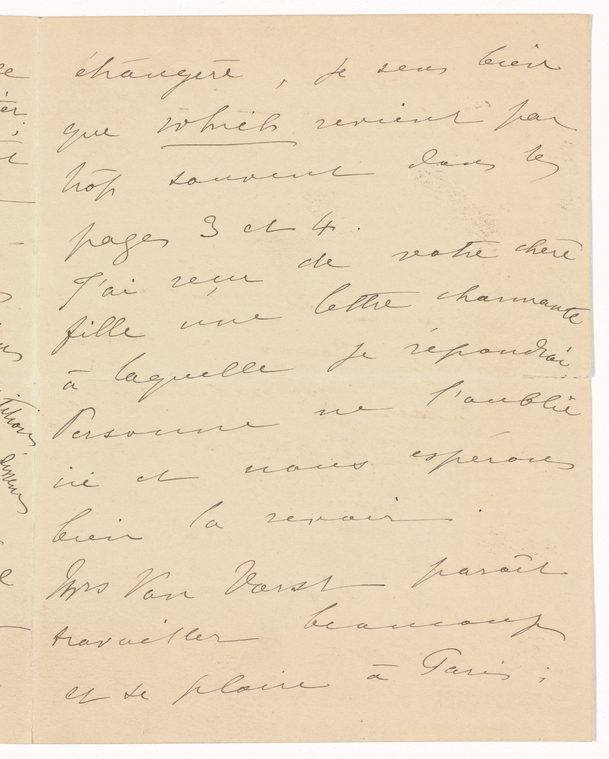 étrangère, je sens bien
que which revient par
trop souvent dans les
pages 3 et 4.
J'ai reçu de votre chère
fille une lettre charmante
à laquelle je répondrai,
Personne ne l'oublie
ici et nous espérons
bien la revoir.
Mrs Van Vorst paraît
travailler beaucoup
et se plaire à Paris;